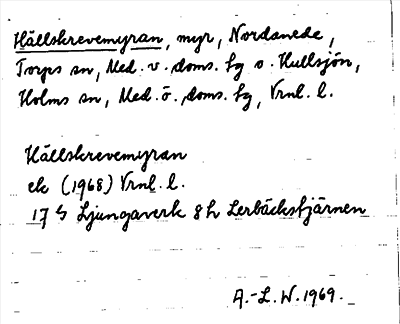 Hällskrevemyran, myr, Nordanede,
Torps sn, Med. v. doms. fg o. Hullsjön,
Holms sn, Med. ö. doms. fg, Vrnl. l.
Hällskrevemyran
ek (1968) Vrnl. l.
17 G Ljungaverk 8 h Lerbäckstjärnen
A.-L. W. 1969.